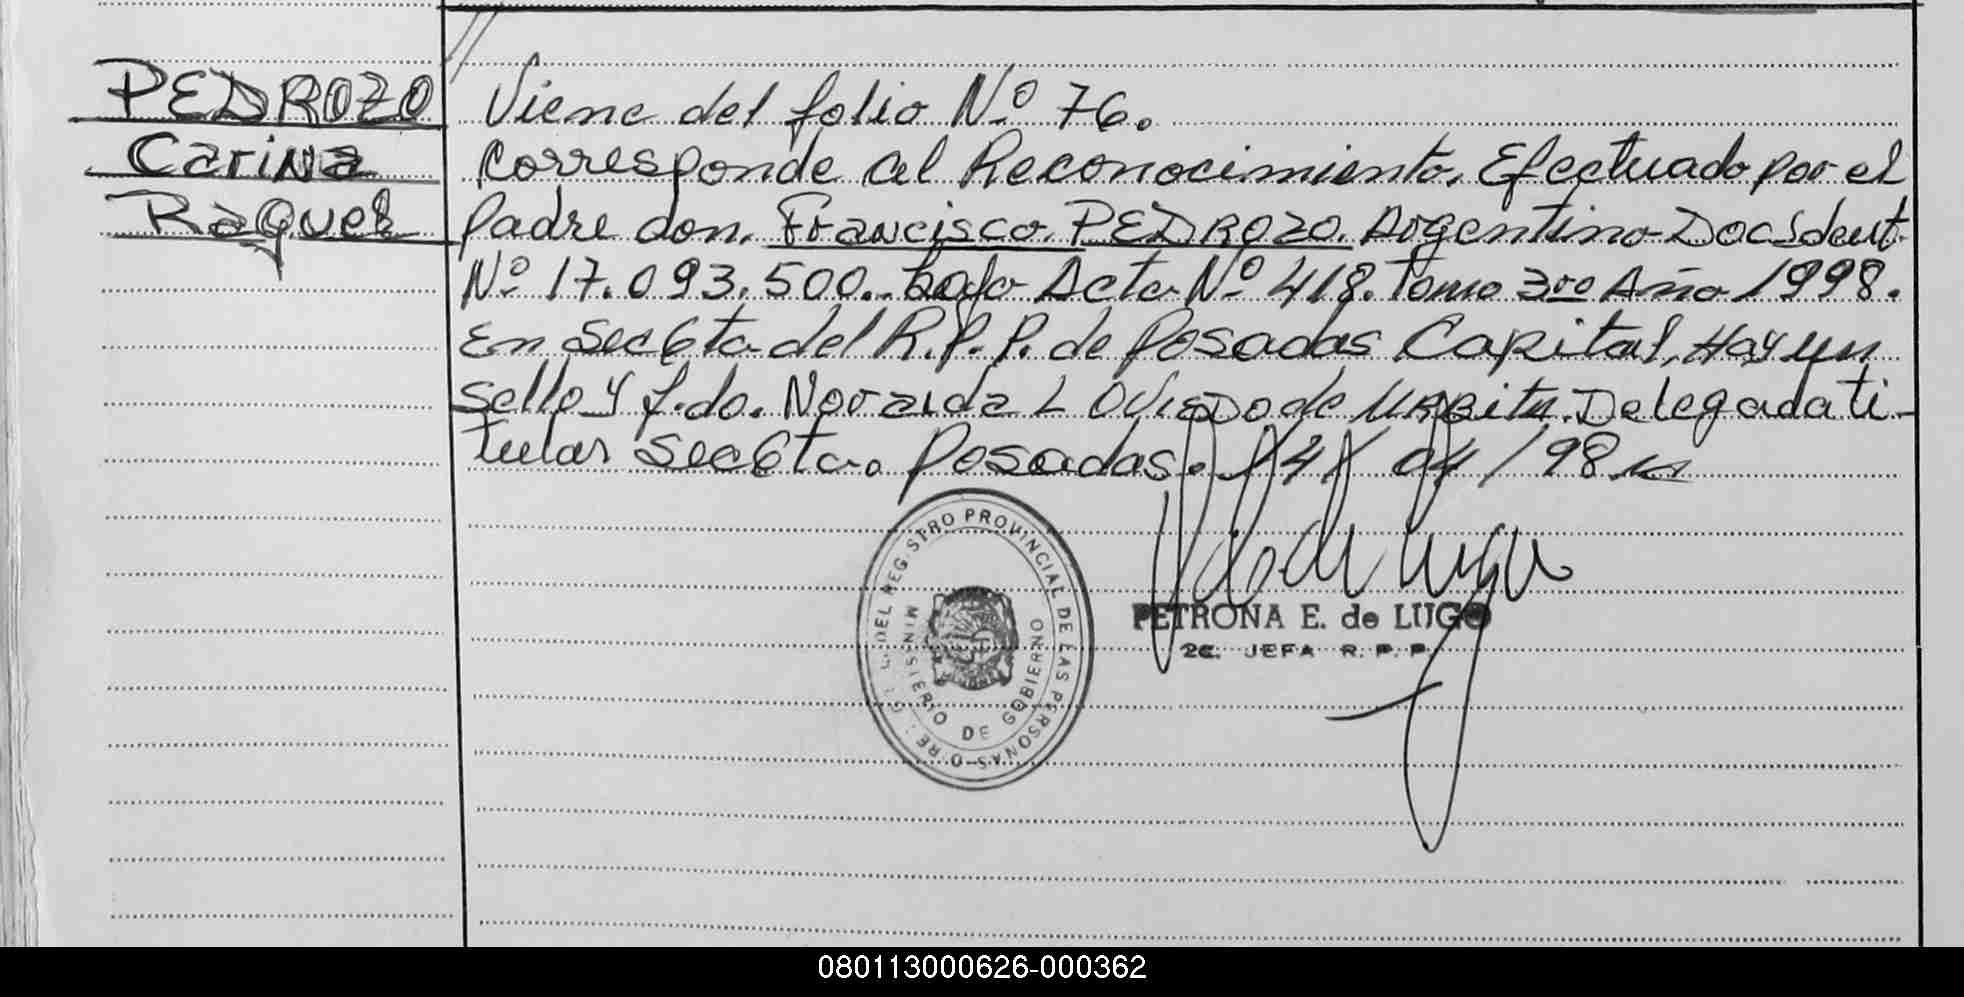 PEDROZO
Carina
Raquel
Viene del folio Nº 76.
Corresponde al Reconocimiento. Efectuado por el
Padre don. Francisco. PEDROZO. Argentino Doc Ident.
Nº 17.093.500. bajo Acta Nº 418. Tomo 3ro Año 1998.
En Sec 6ta del R.P.P. de Posadas Capital, Hay un
sello y f.do. Noraida L Oviedo de Delegada ti-
tular Sec 6ta. Posadas. 04/98
REGISTRO PROVINCIAL DE LAS PERSONAS
MINISTERIO DE GOBIERNO
PETRONA E. de LUGO
2ª. JEFA R. P. P.
080113000626-000362